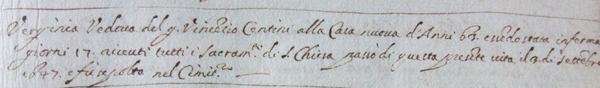 Verginia Vedova del q. Vincentio Centini alla Casa nuova d'Anni 63. essendo stata inferma
giorni 17. riceuti tutti i Sacram.ti di S. Chiesa passò di questa presente vita il dì 2. di Settembre
1647. e fù sepolta nel Cimit.o